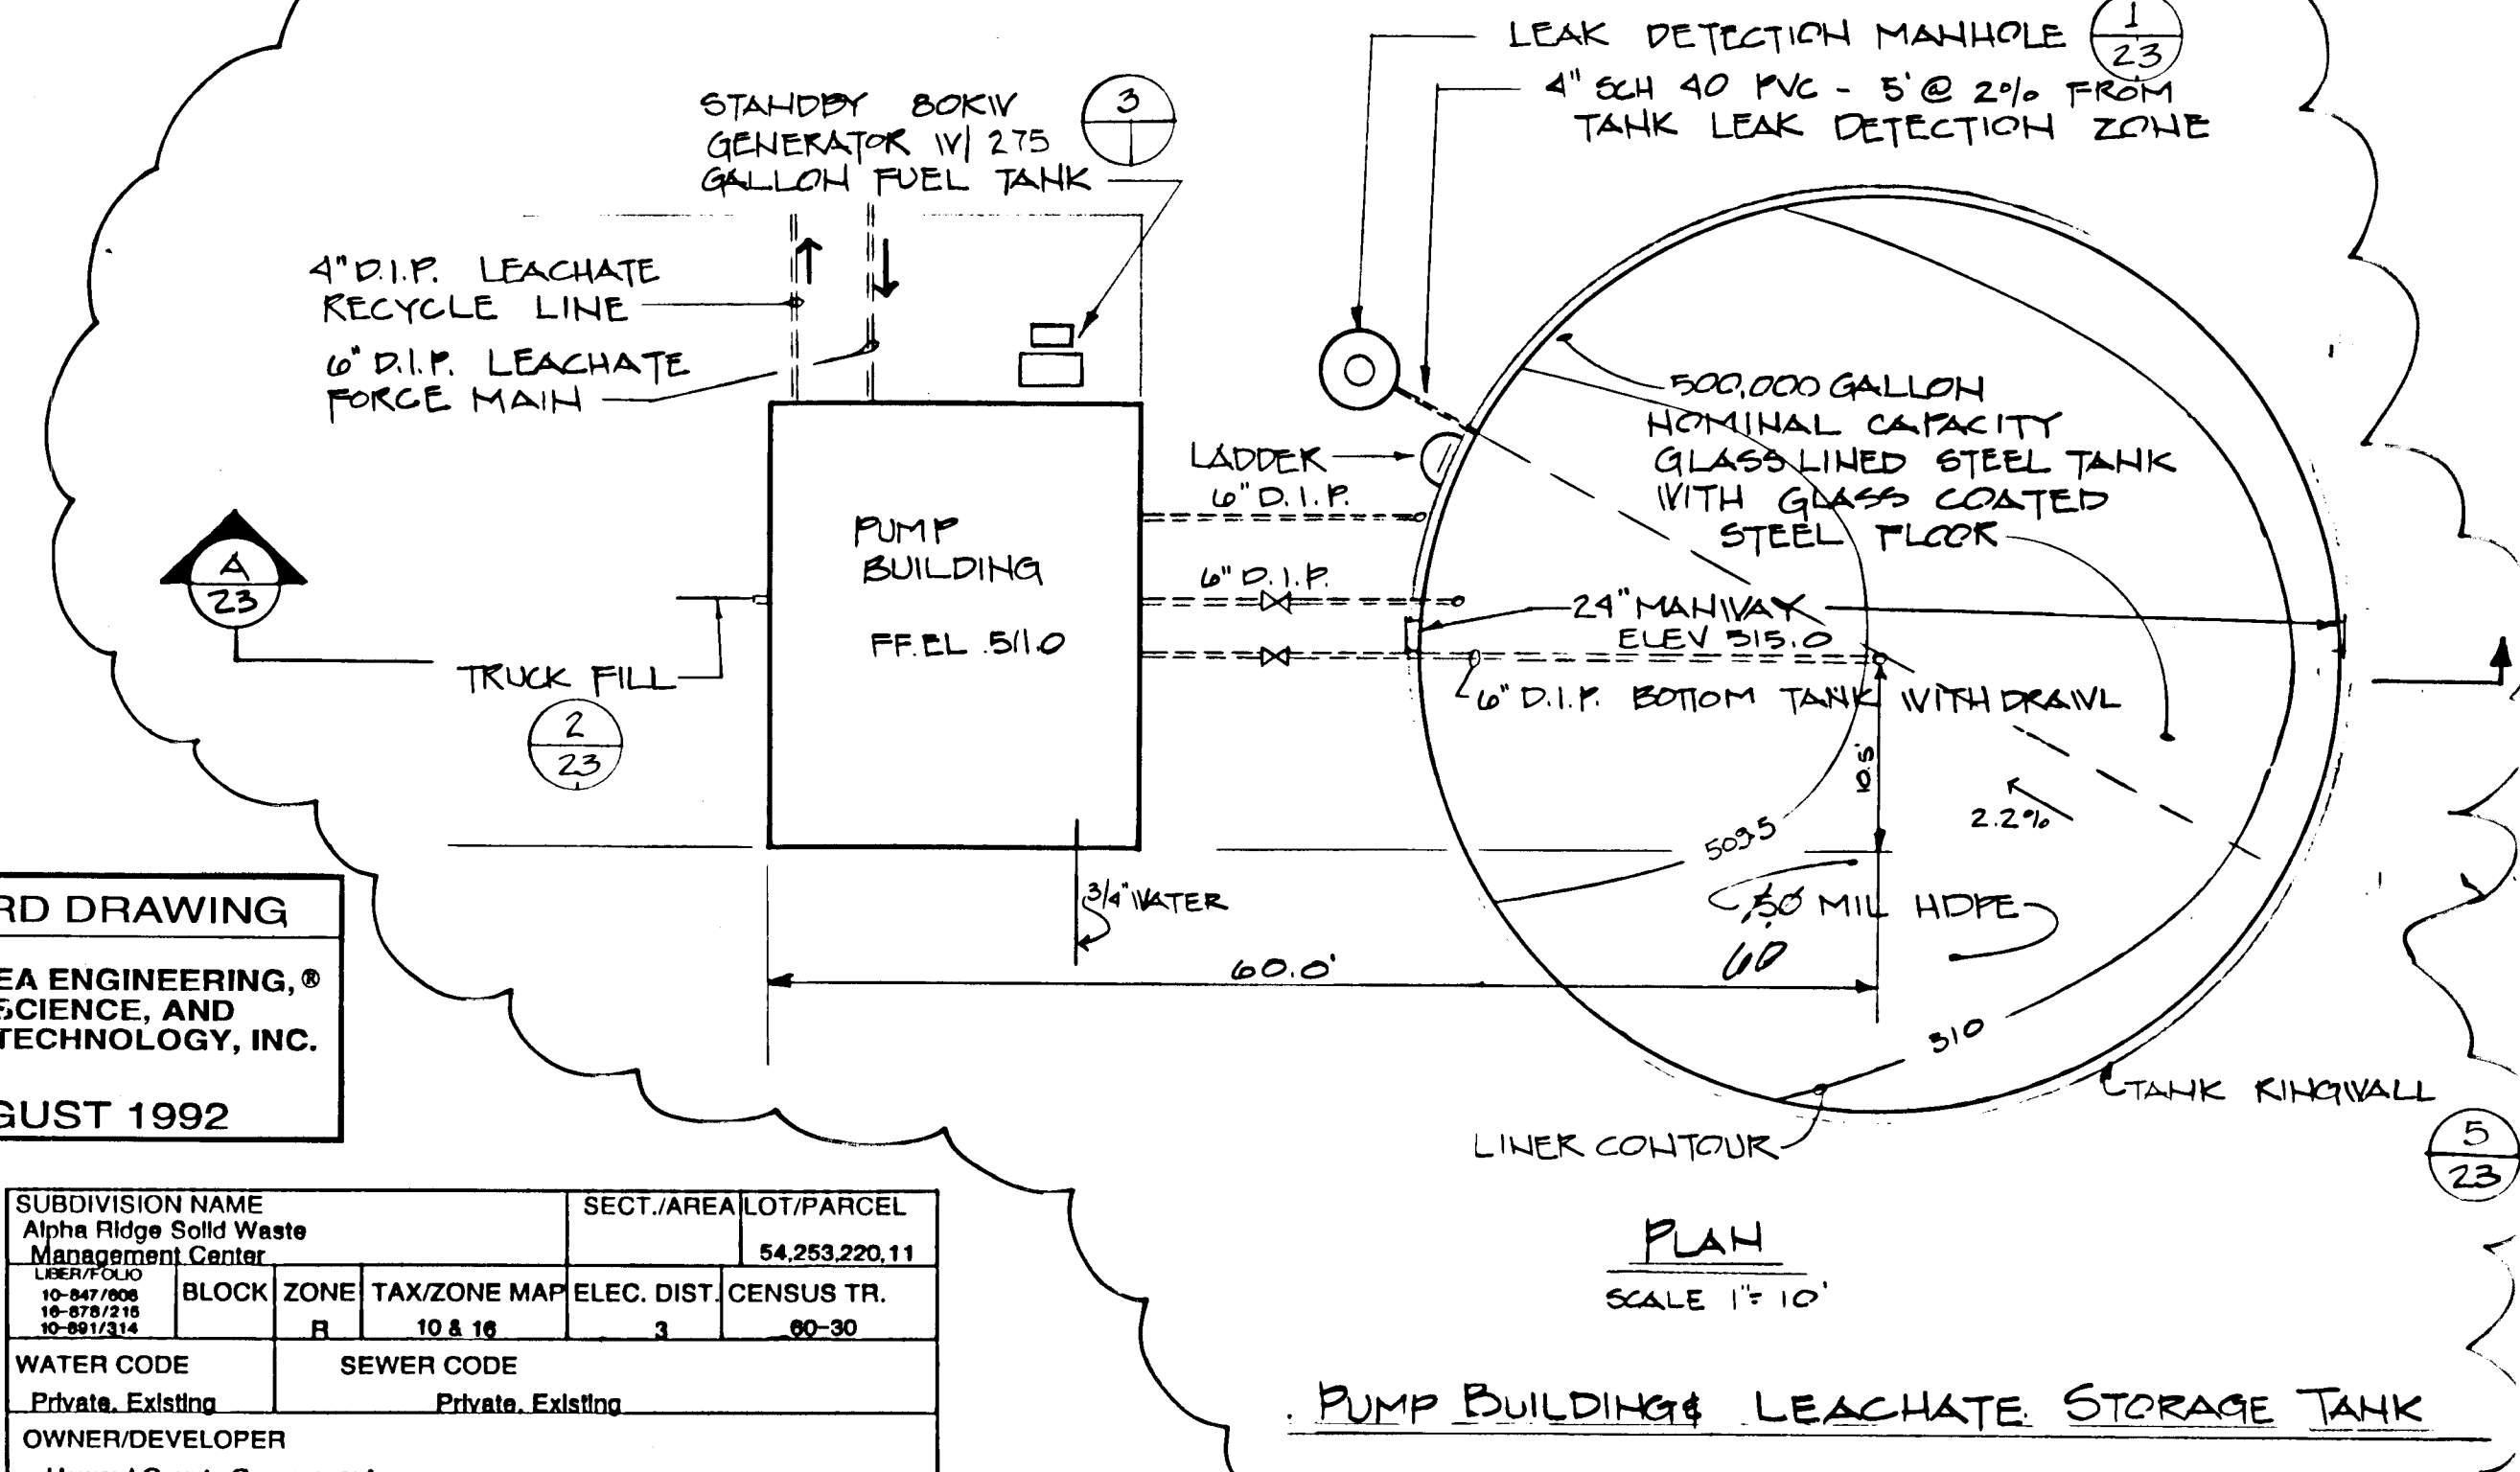 LEAK DETECTION MANHOLE
1
23
4" SCH 40 PVC - 5' @ 2% FROM
TANK LEAK DETECTION ZONE
STANDBY 80KW
GENERATOR W/ 275
GALLON FUEL TANK
3
4" D.I.P. LEACHATE
RECYCLE LINE
6" D.I.P. LEACHATE
FORCE MAIN
500,000 GALLON
NOMINAL CAPACITY
GLASS LINED STEEL TANK
WITH GLASS COATED
STEEL FLOOR
LADDER
6" D.I.P.
6" D.I.P.
PUMP
BUILDING
FF.EL 511.0
A
23
TRUCK FILL
2
23
24" MANWAY
ELEV 515.0
6" D.I.P. BOTTOM TANK WITHDRAWL
10.5'
2.2%
509.5
MIL HDPE
60
3/4" WATER
60.0'
510
TANK RINGWALL
5
23
LINER CONTOUR
PLAN
SCALE 1"=10'
PUMP BUILDING & LEACHATE STORAGE TANK
RD DRAWING
EA ENGINEERING,®
SCIENCE, AND
TECHNOLOGY, INC.
GUST 1992
SUBDIVISION NAME
Alpha Ridge Solid Waste
Management Center
SECT./AREA
LOT/PARCEL
54,253,220,11
LIBER/FOLIO
10-847/608
16-878/215
10-891/314
BLOCK
ZONE
R
TAX/ZONE MAP
10 & 16
ELEC. DIST.
3
CENSUS TR.
60-30
WATER CODE
Private, Existing
SEWER CODE
Private, Existing
OWNER/DEVELOPER